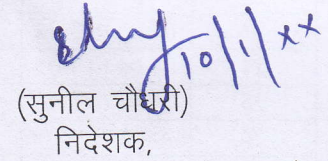 10/1/xx
(सुनील चौधरी)
निदेशक,